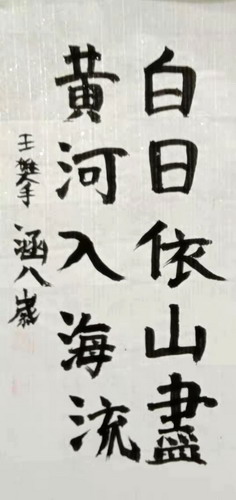 白日依山盡
黃河入海流
王樊手涵八歲